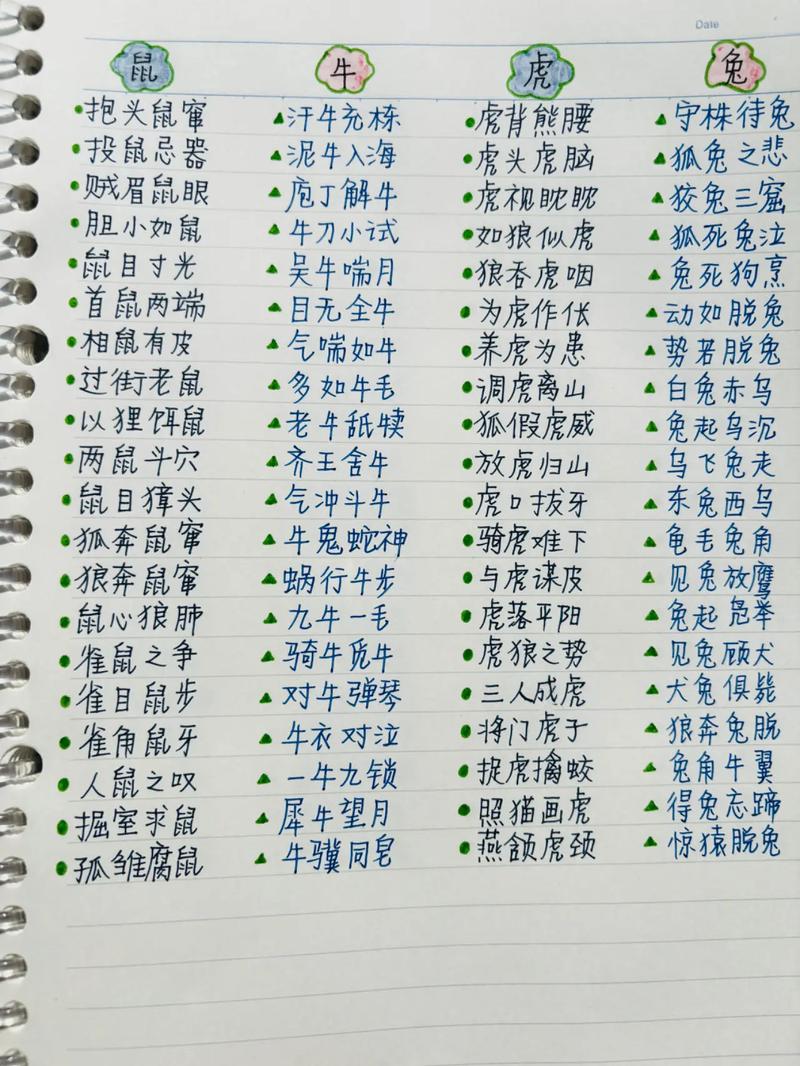 Date
鼠 牛 虎 兔
抱头鼠窜 汗牛充栋 虎背熊腰 守株待兔
投鼠忌器 泥牛入海 虎头虎脑 狐兔之悲
贼眉鼠眼 庖丁解牛 虎视眈眈 狡兔三窟
胆小如鼠 牛刀小试 如狼似虎 狐死兔泣
鼠目寸光 吴牛喘月 狼吞虎咽 兔死狗烹
首鼠两端 目无全牛 为虎作伥 动如脱兔
相鼠有皮 气喘如牛 养虎为患 势若脱兔
过街老鼠 多如牛毛 调虎离山 白兔赤乌
以狸饵鼠 老牛舐犊 狐假虎威 兔起乌沉
两鼠斗穴 齐王舍牛 放虎归山 乌飞兔走
鼠目獐头 气冲斗牛 虎口拔牙 东兔西乌
狐奔鼠窜 牛鬼蛇神 骑虎难下 龟毛兔角
狼奔鼠窜 蜗行牛步 与虎谋皮 见兔放鹰
鼠心狼肺 九牛一毛 虎落平阳 兔起凫举
雀鼠之争 骑牛觅牛 虎狼之势 见兔顾犬
雀目鼠步 对牛弹琴 三人成虎 犬兔俱毙
雀角鼠牙 牛衣对泣 将门虎子 狼奔兔脱
人鼠之叹 一牛九锁 捉虎擒蛟 兔角牛翼
掘室求鼠 犀牛望月 照猫画虎 得兔忘蹄
孤雏腐鼠 牛骥同皂 燕颔虎颈 惊猿脱兔